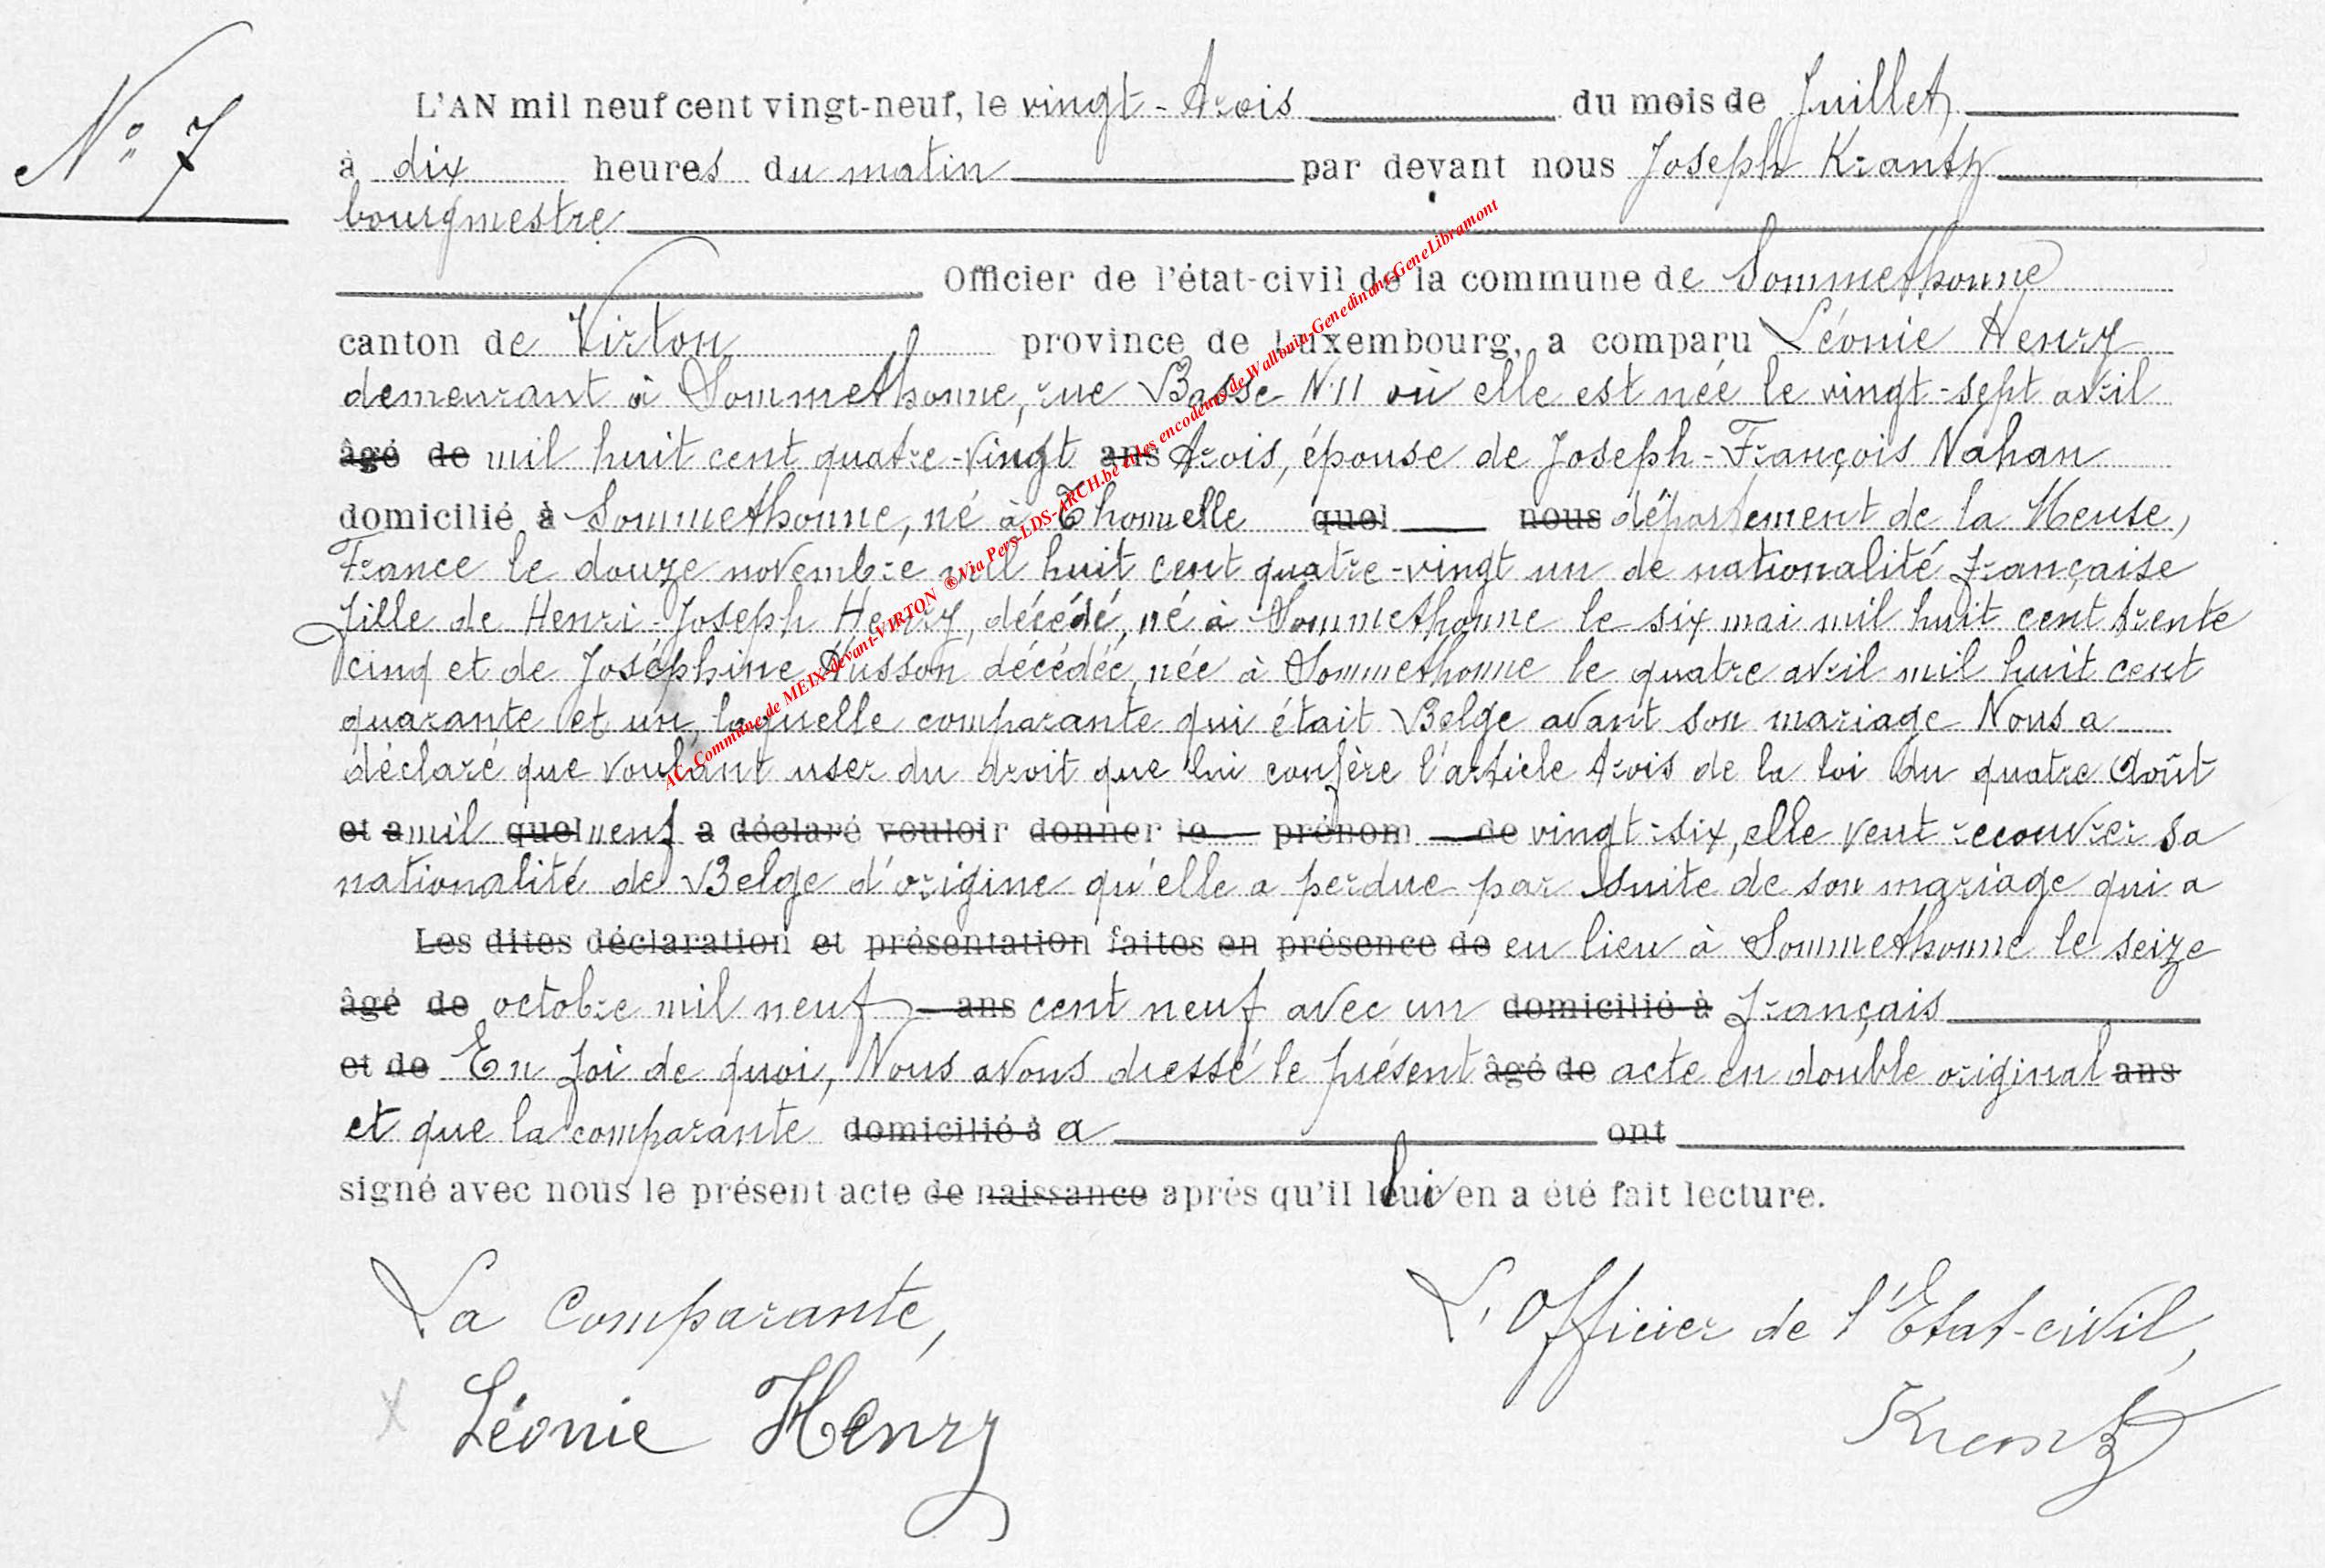 N° 7
L'AN mil neuf cent vingt-neuf, le vingt-trois du mois de Juillet
à dix heures du matin par devant nous Joseph Krantz
bourgmestre
Officier de l'état-civil de la commune de Sommethonne
canton de Virton province de Luxembourg, a comparu Léonie Henry
demeurant à Sommethonne, rue Basse N°11 où elle est née le vingt-sept avril
âgé de mil huit cent quatre-vingt ans trois, épouse de Joseph-François Nahan
domicilié à Sommethonne, né à Thonnelle quel nous département de la Meuse,
France le douze novembre mil huit cent quatre-vingt un de nationalité française
fille de Henri-Joseph Henry, décédé, né à Sommethonne le six mai mil huit cent trente
cinq et de Joséphine Husson décédée, née à Sommethonne le quatre avril mil huit cent
quarante et un, laquelle comparante qui était Belge avant son mariage Nous a
déclaré que voulant user du droit que lui confère l'article trois de la loi du quatre Août
et a mil quel neuf a déclaré vouloir donner le prénom de vingt-six, elle veut recouvrer sa
nationalité de Belge d'origine qu'elle a perdue par suite de son mariage qui a
Les dites déclaration et présentation faites en présence de eu lieu à Sommethonne le seize
âgé de octobre mil neuf ans cent neuf avec un domicilié à français
et de En foi de quoi, Nous avons dressé le présent âgé de acte en double original ans
et que la comparante domicilié à a ont
signé avec nous le présent acte de naissance après qu'il lui en a été fait lecture.
La Comparante,
L'Officier de l'Etat-civil,
Léonie Henry
Krantz
AC-Commune de MEIX-devant-VIRTON ®Via Pers-LDS-ARCH.be et les encodeurs de Wallonia-Genedinant-GeneLibramont